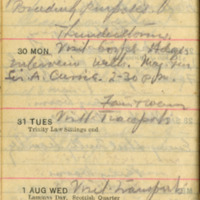 Breeding purposes
Thunderstorm.
30 MON Visit Corps Hdqrs
Interview with Maj. Gen
Sir A. Currie. 2-30 p.m.
Fair
31 TUES Visit Transports
Trinity Law Sittings end.
1 AUG WED Visit transports
Lammas Day. Scottish Quarter